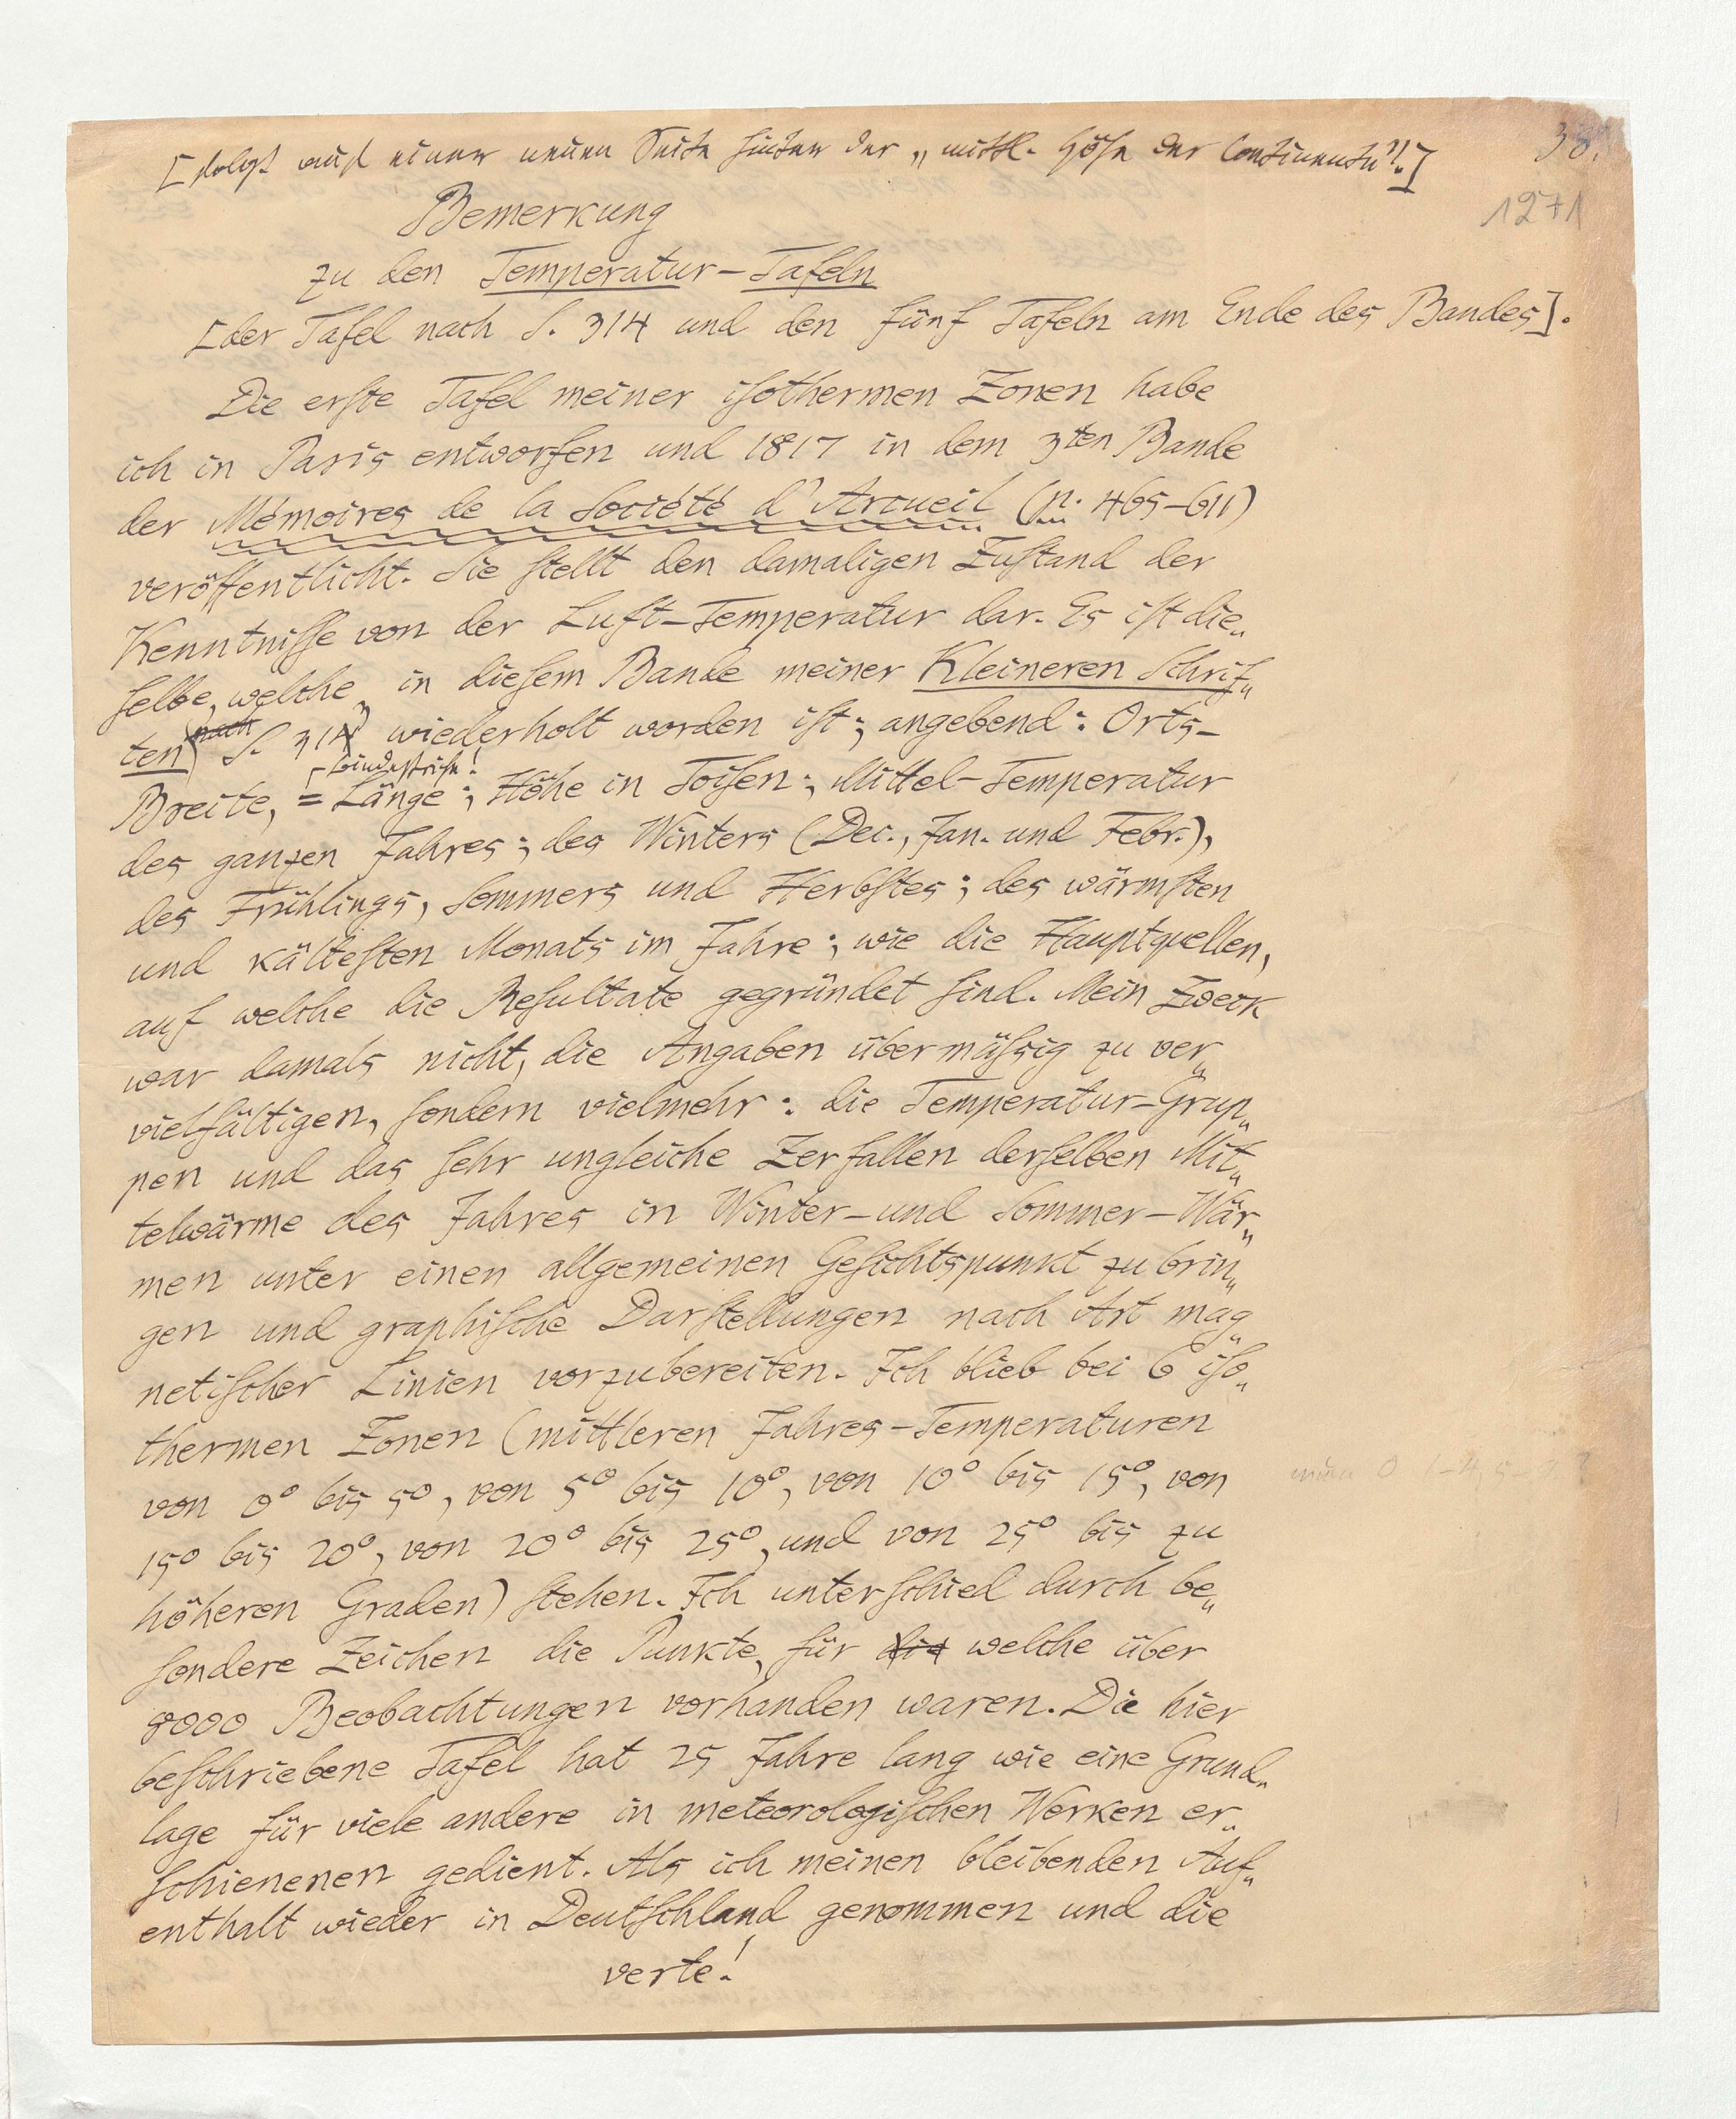 38.
[folgt auf einer neuen Seite hinter der „mittl. Höhe der Continente".]
1271
Bemerkung
zu den Temperatur-Tafeln
[der Tafel nach S. 314 und den fünf Tafeln am Ende des Bandes].
Die erſte Tafel meiner iſothermen Zonen habe
ich in Paris entworfen und 1817 in dem 3ten Bande
der Mémoires de la Société d'Arcueil (p. 465-611)
veröffentlicht. Sie ſtellt den damaligen Zuſtand der
Kenntniſſe von der Luft-Temperatur dar. Es iſt die„
ſelbe, welche, in dieſem Bande meiner Kleineren Schrif„
ten (nach S. 314) wiederholt worden iſt; angebend: Orts-
Bindeſtriche!
Breite, =Länge; Höhe in Toiſen; Mittel-Temperatur
des ganzen Jahres; des Winters (Dec., Jan. und Febr.),
des Frühlings, Sommers und Herbſtes; des wärmſten
und kälteſten Monats im Jahre; wie die Hauptquellen,
auf welche die Reſultate gegründet ſind. Mein Zweck
war damals nicht, die Angaben übermäſsig zu ver„
vielfältigen, ſondern vielmehr: die Temperatur-Grup„
pen und das ſehr ungleiche Zerfallen derſelben Mit„
telwärme des Jahres in Winter- und Sommer-Wär„
men unter einen allgemeinen Geſichtspunkt zu brin„
gen und graphiſche Darſtellungen nach Art mag„
netiſcher Linien vorzubereiten. Ich blieb bei 6 iſo„
thermen Zonen (mittleren Jahres-Temperaturen
von 0° bis 5°, von 5° bis 10°, von 10° bis 15°, von
15° bis 20°, von 20° bis 25°, und von 25° bis zu
höheren Graden) ſtehen. Ich unterſchied durch be„
ſondere Zeichen die Punkte, für die welche über
8000 Beobachtungen vorhanden waren. Die hier
beſchriebene Tafel hat 25 Jahre lang wie eine Grund„
lage für viele andere in meteorologiſchen Werken er„
ſchienenen gedient. Als ich meinen bleibenden Auf„
enthalt wieder in Deutſchland genommen und die
verte!